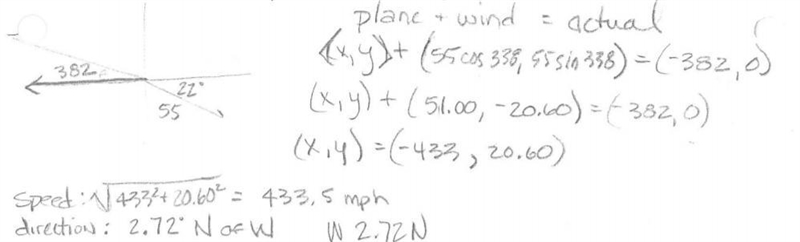 plane + wind = actual
(x,y) + (55cos 338, 55 sin 338) = (-382, 0)
(x,y) + (51.00, -20.60) = (-382, 0)
(x,y) = (-433, 20.60)
382
22°
55
speed: √433²+20.60² = 433.5 mph
direction: 2.72° N of W W 2.72 N